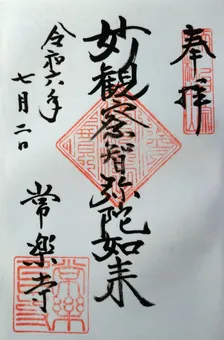 奉拝
妙観察智弥陀如来
常楽寺
令和六年
七月二日